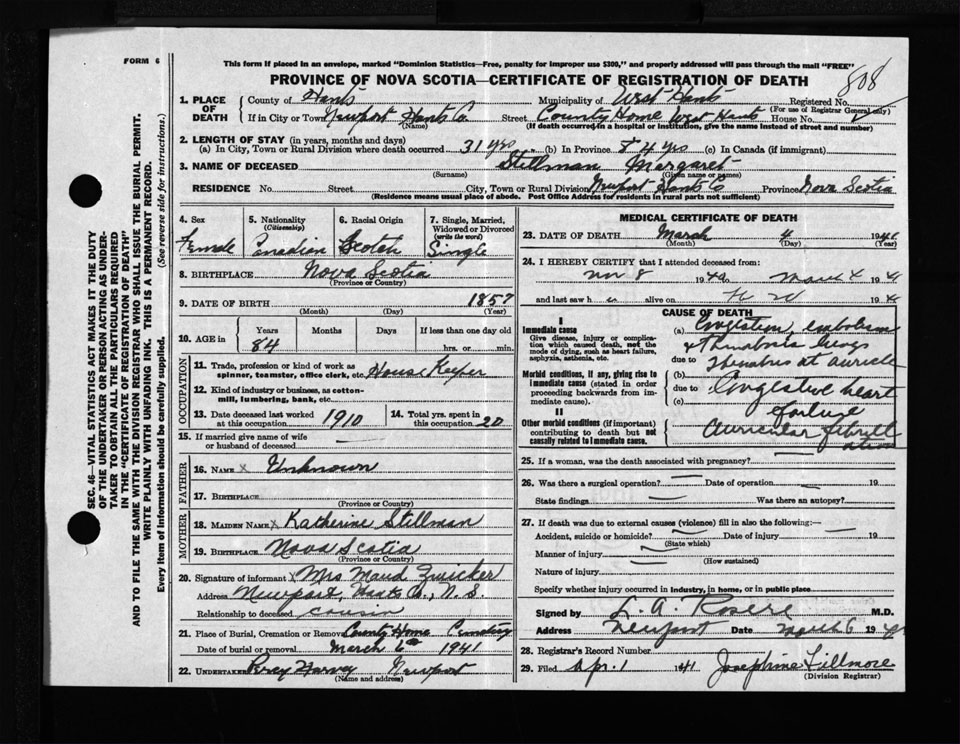 FORM 6
This form if placed in an envelope, marked "Dominion Statistics—Free, penalty for improper use $300," and properly addressed will pass through the mail "FREE"
PROVINCE OF NOVA SCOTIA—CERTIFICATE OF REGISTRATION OF DEATH
808
1. PLACE OF DEATH
County of Hants Municipality of West Hants Registered No.
(For use of Registrar General only)
If in City or Town Newport Hants Co. Street County Home West Hants House No.
(Name) (If death occurred in a hospital or institution, give the name instead of street and number)
2. LENGTH OF STAY (in years, months and days)
(a) In City, Town or Rural Division where death occurred 31 yrs (b) In Province 84 yrs (c) In Canada (if immigrant)
3. NAME OF DECEASED Stillman Margaret
(Surname) (Given name or names)
RESIDENCE No. Street City, Town or Rural Division Newport Hants Co Province Nova Scotia
(Residence means usual place of abode. Post Office Address for residents in rural parts not sufficient)
4. Sex Female
5. Nationality (Citizenship) Canadian
6. Racial Origin Scotch
7. Single, Married, Widowed or Divorced (write the word) Single
8. BIRTHPLACE Nova Scotia
(Province or Country)
9. DATE OF BIRTH 1857
(Month) (Day) (Year)
10. AGE in Years Months Days If less than one day old
84 hrs. or min.
OCCUPATION
11. Trade, profession or kind of work as spinner, teamster, office clerk, etc. House Keeper
12. Kind of industry or business, as cotton-mill, lumbering, bank, etc.
13. Date deceased last worked at this occupation 1910
14. Total yrs. spent in this occupation 20
15. If married give name of wife or husband of deceased —
FATHER
16. NAME x Unknown
17. BIRTHPLACE
(Province or Country)
MOTHER
18. MAIDEN NAME x Katherine Stillman
19. BIRTHPLACE Nova Scotia
(Province or Country)
20. Signature of informant x Mrs Maud Zwicker
Address Newport, Hants Co., N.S.
Relationship to deceased cousin
21. Place of Burial, Cremation or Removal County Home Cemetery
Date of burial or removal March 6th 1941
22. UNDERTAKER Percy Harvey Newport
(Name and address)
MEDICAL CERTIFICATE OF DEATH
23. DATE OF DEATH March 4 1941
(Month) (Day) (Year)
24. I HEREBY CERTIFY that I attended deceased from:
Nov 8 1940 March 4 1941
and last saw h er alive on 194
CAUSE OF DEATH
I
Immediate cause
Give disease, injury or complication which caused death, not the mode of dying, such as heart failure, asphyxia, asthenia, etc.
(a) Congestion, embolism
& thrombosis lungs
due to Thrombus at auricle
Morbid conditions, if any, giving rise to immediate cause (stated in order proceeding backwards from immediate cause).
(b)
due to Congestive heart
(c) failure
II
Other morbid conditions (if important) contributing to death but not causally related to immediate cause.
Auricular fibrillation
25. If a woman, was the death associated with pregnancy? —
26. Was there a surgical operation? — Date of operation — 19
State findings — Was there an autopsy?
27. If death was due to external causes (violence) fill in also the following:—
Accident, suicide or homicide? — Date of injury 19
(State which)
Manner of injury —
(How sustained)
Nature of injury
Specify whether injury occurred in industry, in home, or in public place
Signed by M.D.
Address Newport Date March 6 1941
28. Registrar's Record Number
29. Filed Apr. 1 1941 Josephine Fillmore
(Division Registrar)
SEC. 46—VITAL STATISTICS ACT MAKES IT THE DUTY
OF THE UNDERTAKER OR PERSON ACTING AS UNDER-
TAKER TO OBTAIN ALL THE PARTICULARS REQUIRED
IN THE "CERTIFICATE OF REGISTRATION OF DEATH"
AND TO FILE THE SAME WITH THE DIVISION REGISTRAR WHO SHALL ISSUE THE BURIAL PERMIT.
WRITE PLAINLY WITH UNFADING INK. THIS IS A PERMANENT RECORD.
Every item of information should be carefully supplied. (See reverse side for instructions.)